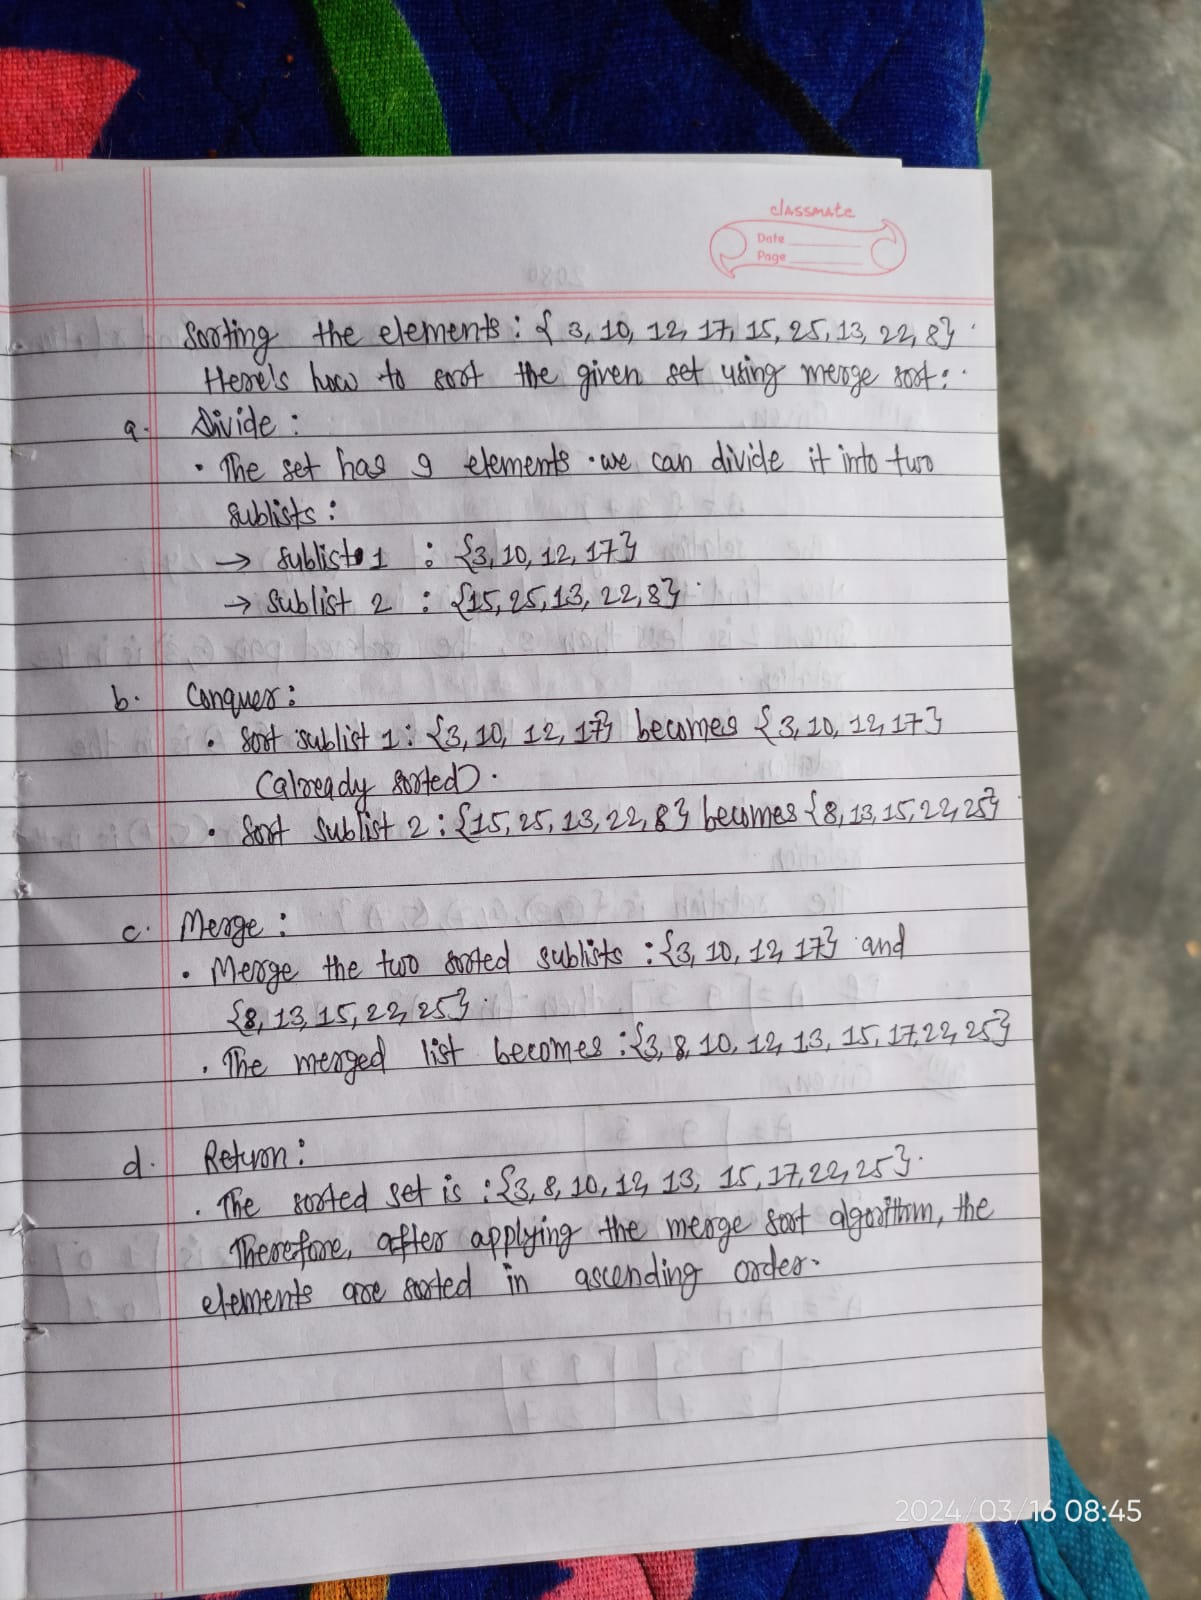 classmate
Date
Page
Sorting the elements : { 3, 10, 12, 17, 15, 25, 13, 22, 8}
Here's how to sort the given set using merge sort :
a. Divide :
• The set has 9 elements. we can divide it into two
sublists :
→ sublist 1 : {3, 10, 12, 17}
→ Sublist 2 : {15, 25, 13, 22, 8}
b. Conquer :
• Sort sublist 1 : {3, 10, 12, 17} becomes {3, 10, 12, 17}
(already sorted).
• Sort sublist 2 : {15, 25, 13, 22, 8} becomes {8, 13, 15, 22, 25}
c. Merge :
• Merge the two sorted sublists : {3, 10, 12, 17} and
{8, 13, 15, 22, 25}.
• The merged list becomes : {3, 8, 10, 12, 13, 15, 17, 22, 25}
d. Return :
• The sorted set is : {3, 8, 10, 12, 13, 15, 17, 22, 25}.
Therefore, after applying the merge sort algorithm, the
elements are sorted in ascending order.
2024/03/16 08:45